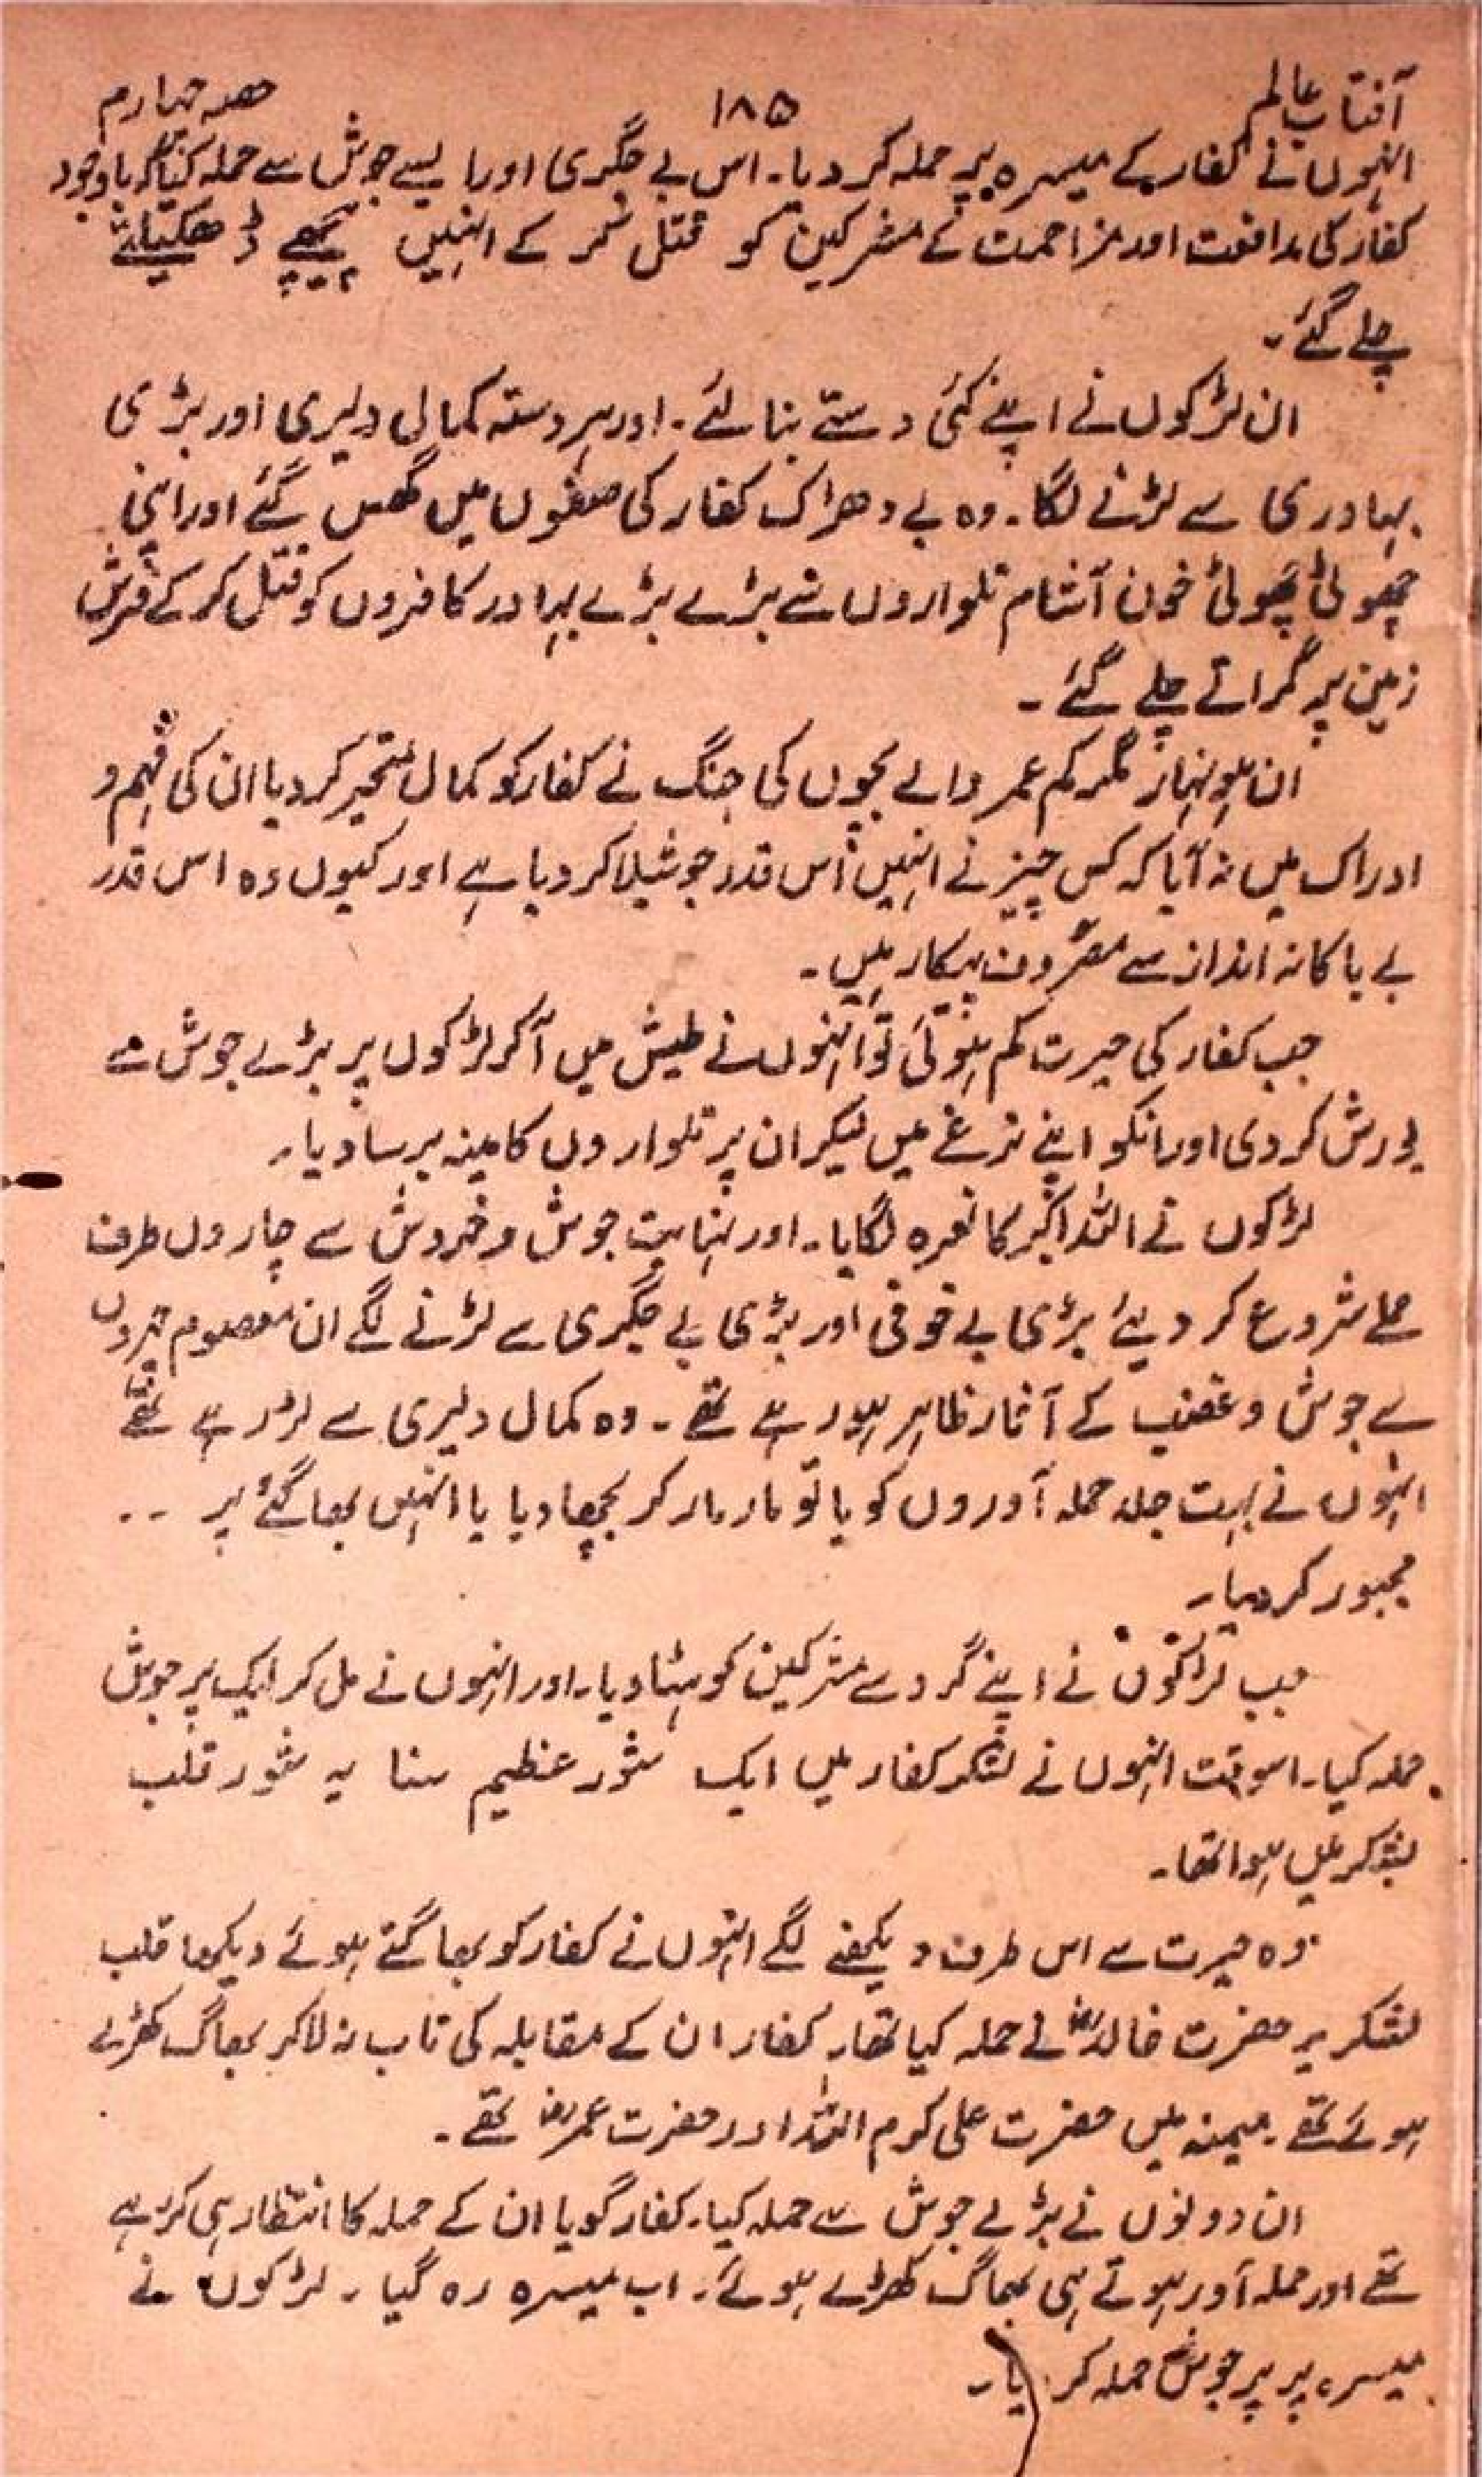 آفتاب عالم ۱۸۵ حصہ چہارم
انہوں نے کفار کے میسرہ پر حملہ کر دیا۔ اس بے جگری اور ایسے جوش سے حملہ کیا کہ باوجود
کفار کی مدافعت اور مزاحمت کے مشرکین کو قتل کر کے انہیں پیچھے ڈھکیلتے
چلے گئے۔
ان لڑکوں نے اپنے کئی دستے بنا لئے۔ اور ہر دستہ کمال دلیری اور بڑی
بہادری سے لڑنے لگا۔ وہ بے دھڑک کفار کی صفوں میں گھس گئے اور اپنی
چھوٹی چھوٹی خون آشام تلواروں سے بڑے بڑے بہادر کافروں کو قتل کر کے فرش
زمین پر گراتے چلے گئے۔
ان ہونہار مگر کم عمر والے بچوں کی جنگ نے کفار کو کمال متحیر کر دیا ان کی فہم و
ادراک میں نہ آیا کہ کس چیز نے انہیں اس قدر جوشیلا کر دیا ہے اور کیوں وہ اس قدر
بے باکانہ انداز سے مصروف پیکار ہیں۔
جب کفار کی حیرت کم ہوئی تو انہوں نے طیش میں آکر لڑکوں پر بڑے جوش سے
یورش کر دی اور انکو اپنے نرغے میں لیکر ان پر تلواروں کا مینہ برسا دیا۔
لڑکوں نے اللہ اکبر کا نعرہ لگایا۔ اور نہایت جوش و خروش سے چاروں طرف
حملے شروع کر دیئے بڑی بے خوفی اور بڑی بے جگری سے لڑنے لگے ان معصوم چہروں
سے جوش و غضب کے آثار ظاہر ہو رہے تھے۔ وہ کمال دلیری سے لڑ رہے تھے
انہوں نے بہت جلد حملہ آوروں کو یا تو مار مار کر بچھا دیا یا انہیں بھاگنے پر ۔۔
مجبور کر دیا۔
جب لڑکوں نے اپنے گرد سے مشرکین کو ہٹا دیا۔ اور انہوں نے مل کر ایک پر جوش
حملہ کیا۔ اسوقت انہوں نے لشکر کفار میں ایک شور عظیم سنا یہ شور قلب
لشکر میں ہوا تھا۔
وہ حیرت سے اس طرف دیکھنے لگے انہوں نے کفار کو بھاگتے ہوئے دیکھا قلب
لشکر پر حضرت خالدؓ نے حملہ کیا تھا۔ کفار ان کے مقابلہ کی تاب نہ لا کر بھاگ کھڑے
ہوئے تھے۔ میمنہ میں حضرت علی کرم اللہ اور حضرت عمرؓ تھے۔
ان دونوں نے بڑے جوش سے حملہ کیا۔ کفار گویا ان کے حملہ کا انتظار ہی کر رہے
تھے اور حملہ آور ہوتے ہی بھاگ کھڑے ہوئے۔ اب میسرہ رہ گیا۔ لڑکوں نے
میسرہ پر پر جوش حملہ کر دیا۔